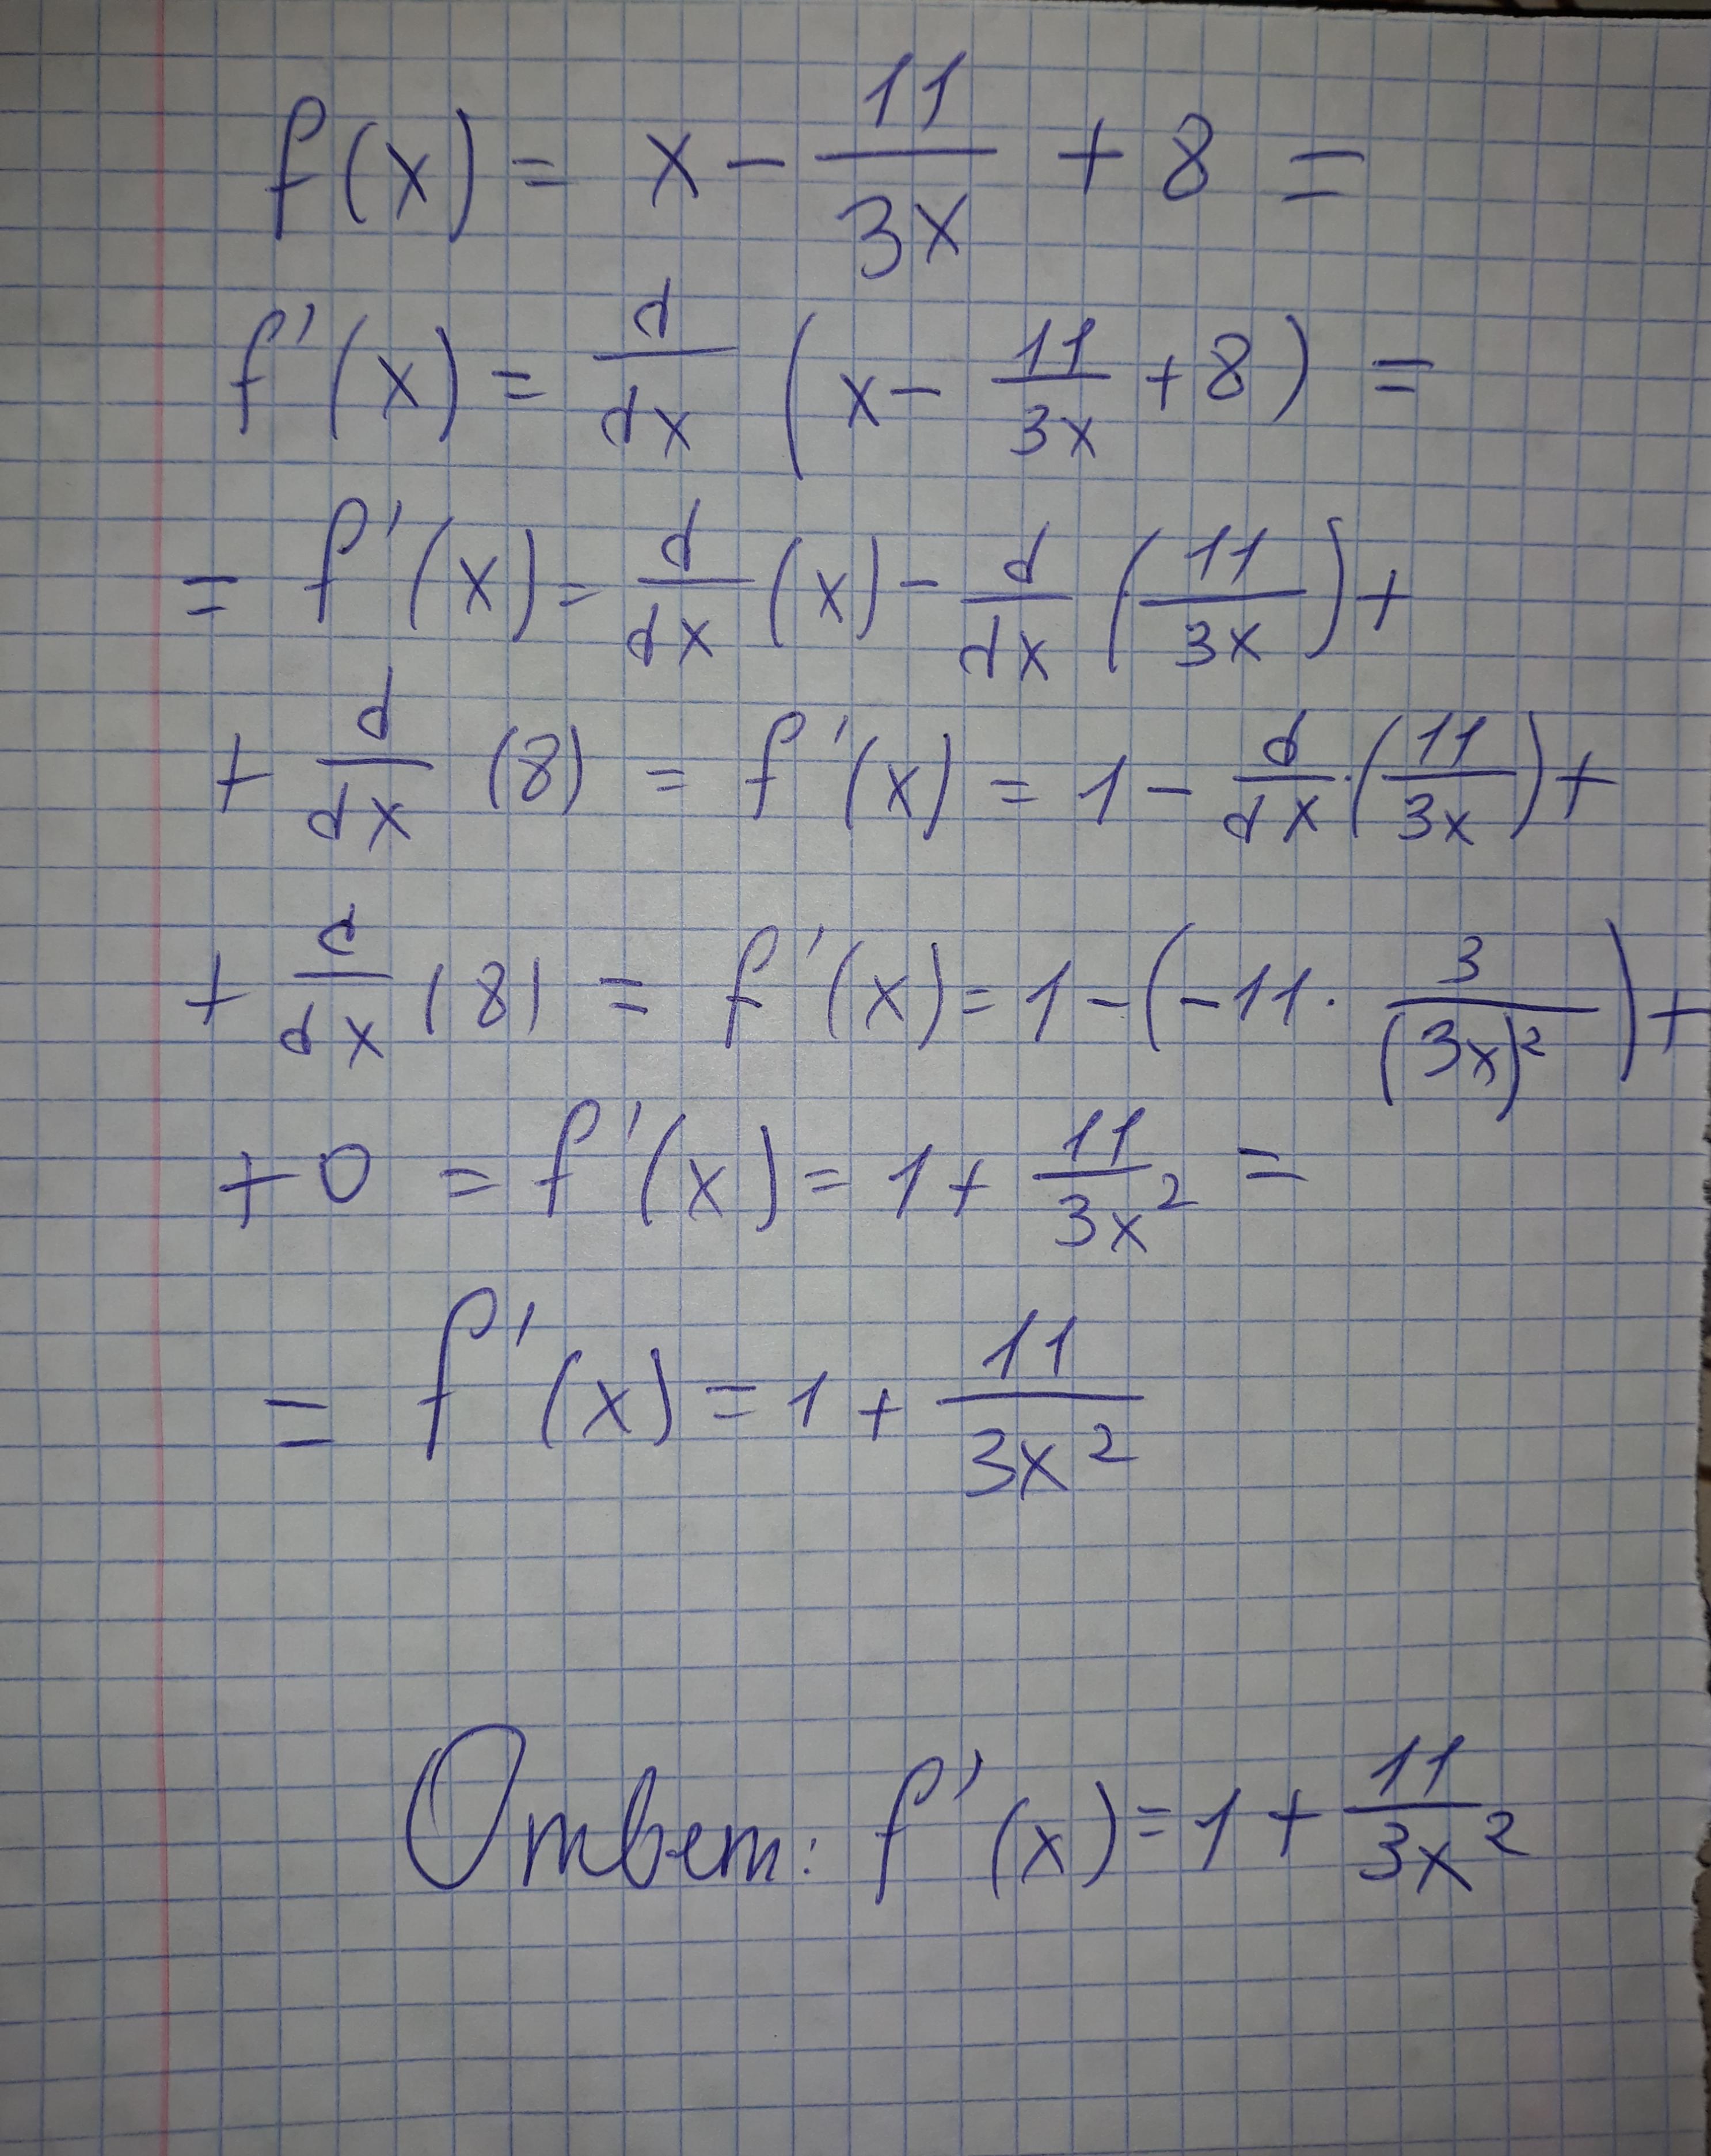 f(x) = x - 11/3x + 8 =
f'(x) = d/dx (x - 11/3x + 8) =
= f'(x) = d/dx (x) - d/dx (11/3x) +
+ d/dx (8) = f'(x) = 1 - d/dx · (11/3x) +
+ d/dx (8) = f'(x) = 1 - (-11 · 3/(3x)²) +
+ 0 = f'(x) = 1 + 11/3x² =
= f'(x) = 1 + 11/3x²
Ответ: f'(x) = 1 + 11/3x²